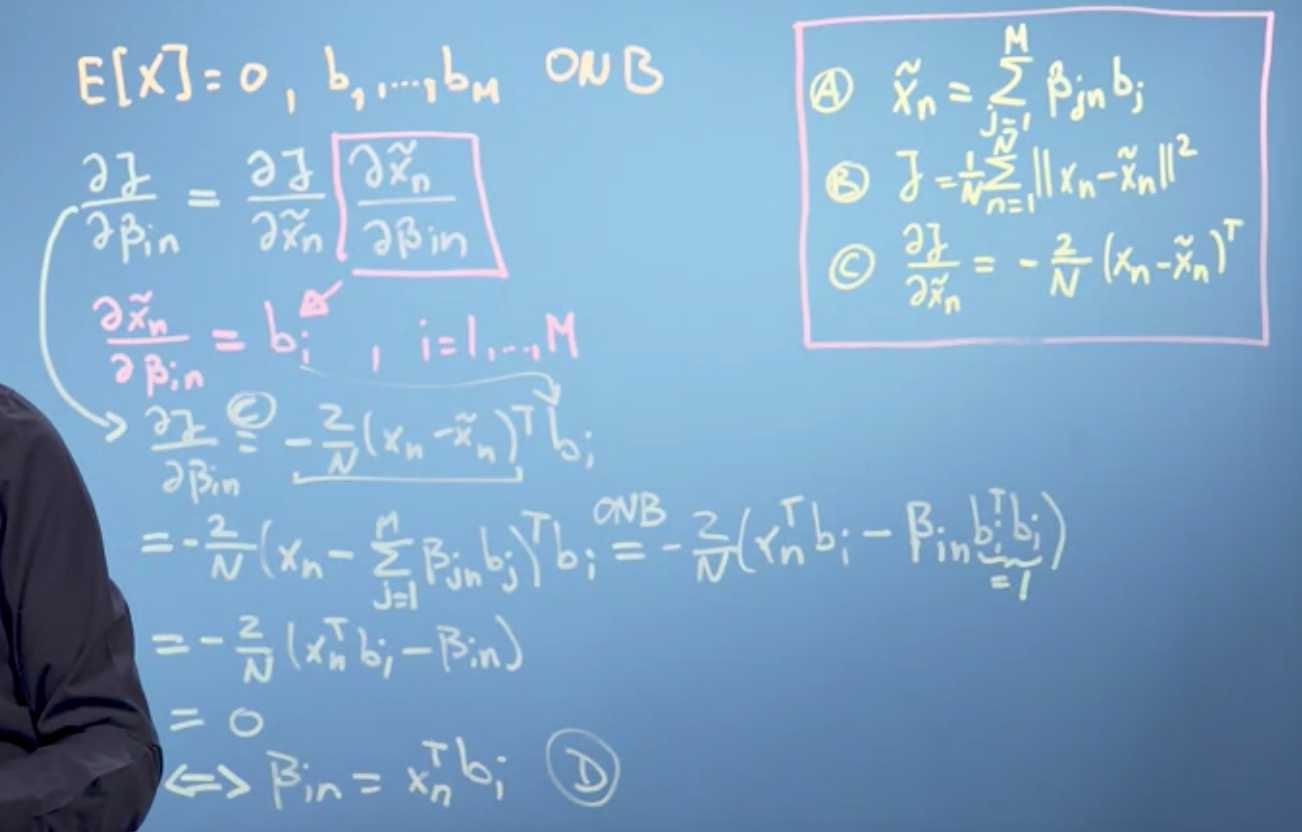 E[X]=0, b₁,...,b_M ONB
∂J/∂β_in = ∂J/∂x̃_n ∂x̃_n/∂β_in
∂x̃_n/∂β_in = b_i , i=1,...,M
∂J/∂β_in =^Ⓒ -2/N (x_n - x̃_n)^T b_i
= -2/N (x_n - Σ_{j=1}^{M} β_jn b_j)^T b_i =^{ONB} -2/N (x_n^T b_i - β_in b_i^T b_i) =1
= -2/N (x_n^T b_i - β_in)
= 0
⟺ β_in = x_n^T b_i Ⓓ
Ⓐ x̃_n = Σ_{j=1}^{M} β_jn b_j
Ⓑ J = 1/N Σ_{n=1}^{N} ||x_n - x̃_n||²
Ⓒ ∂J/∂x̃_n = -2/N (x_n - x̃_n)^T